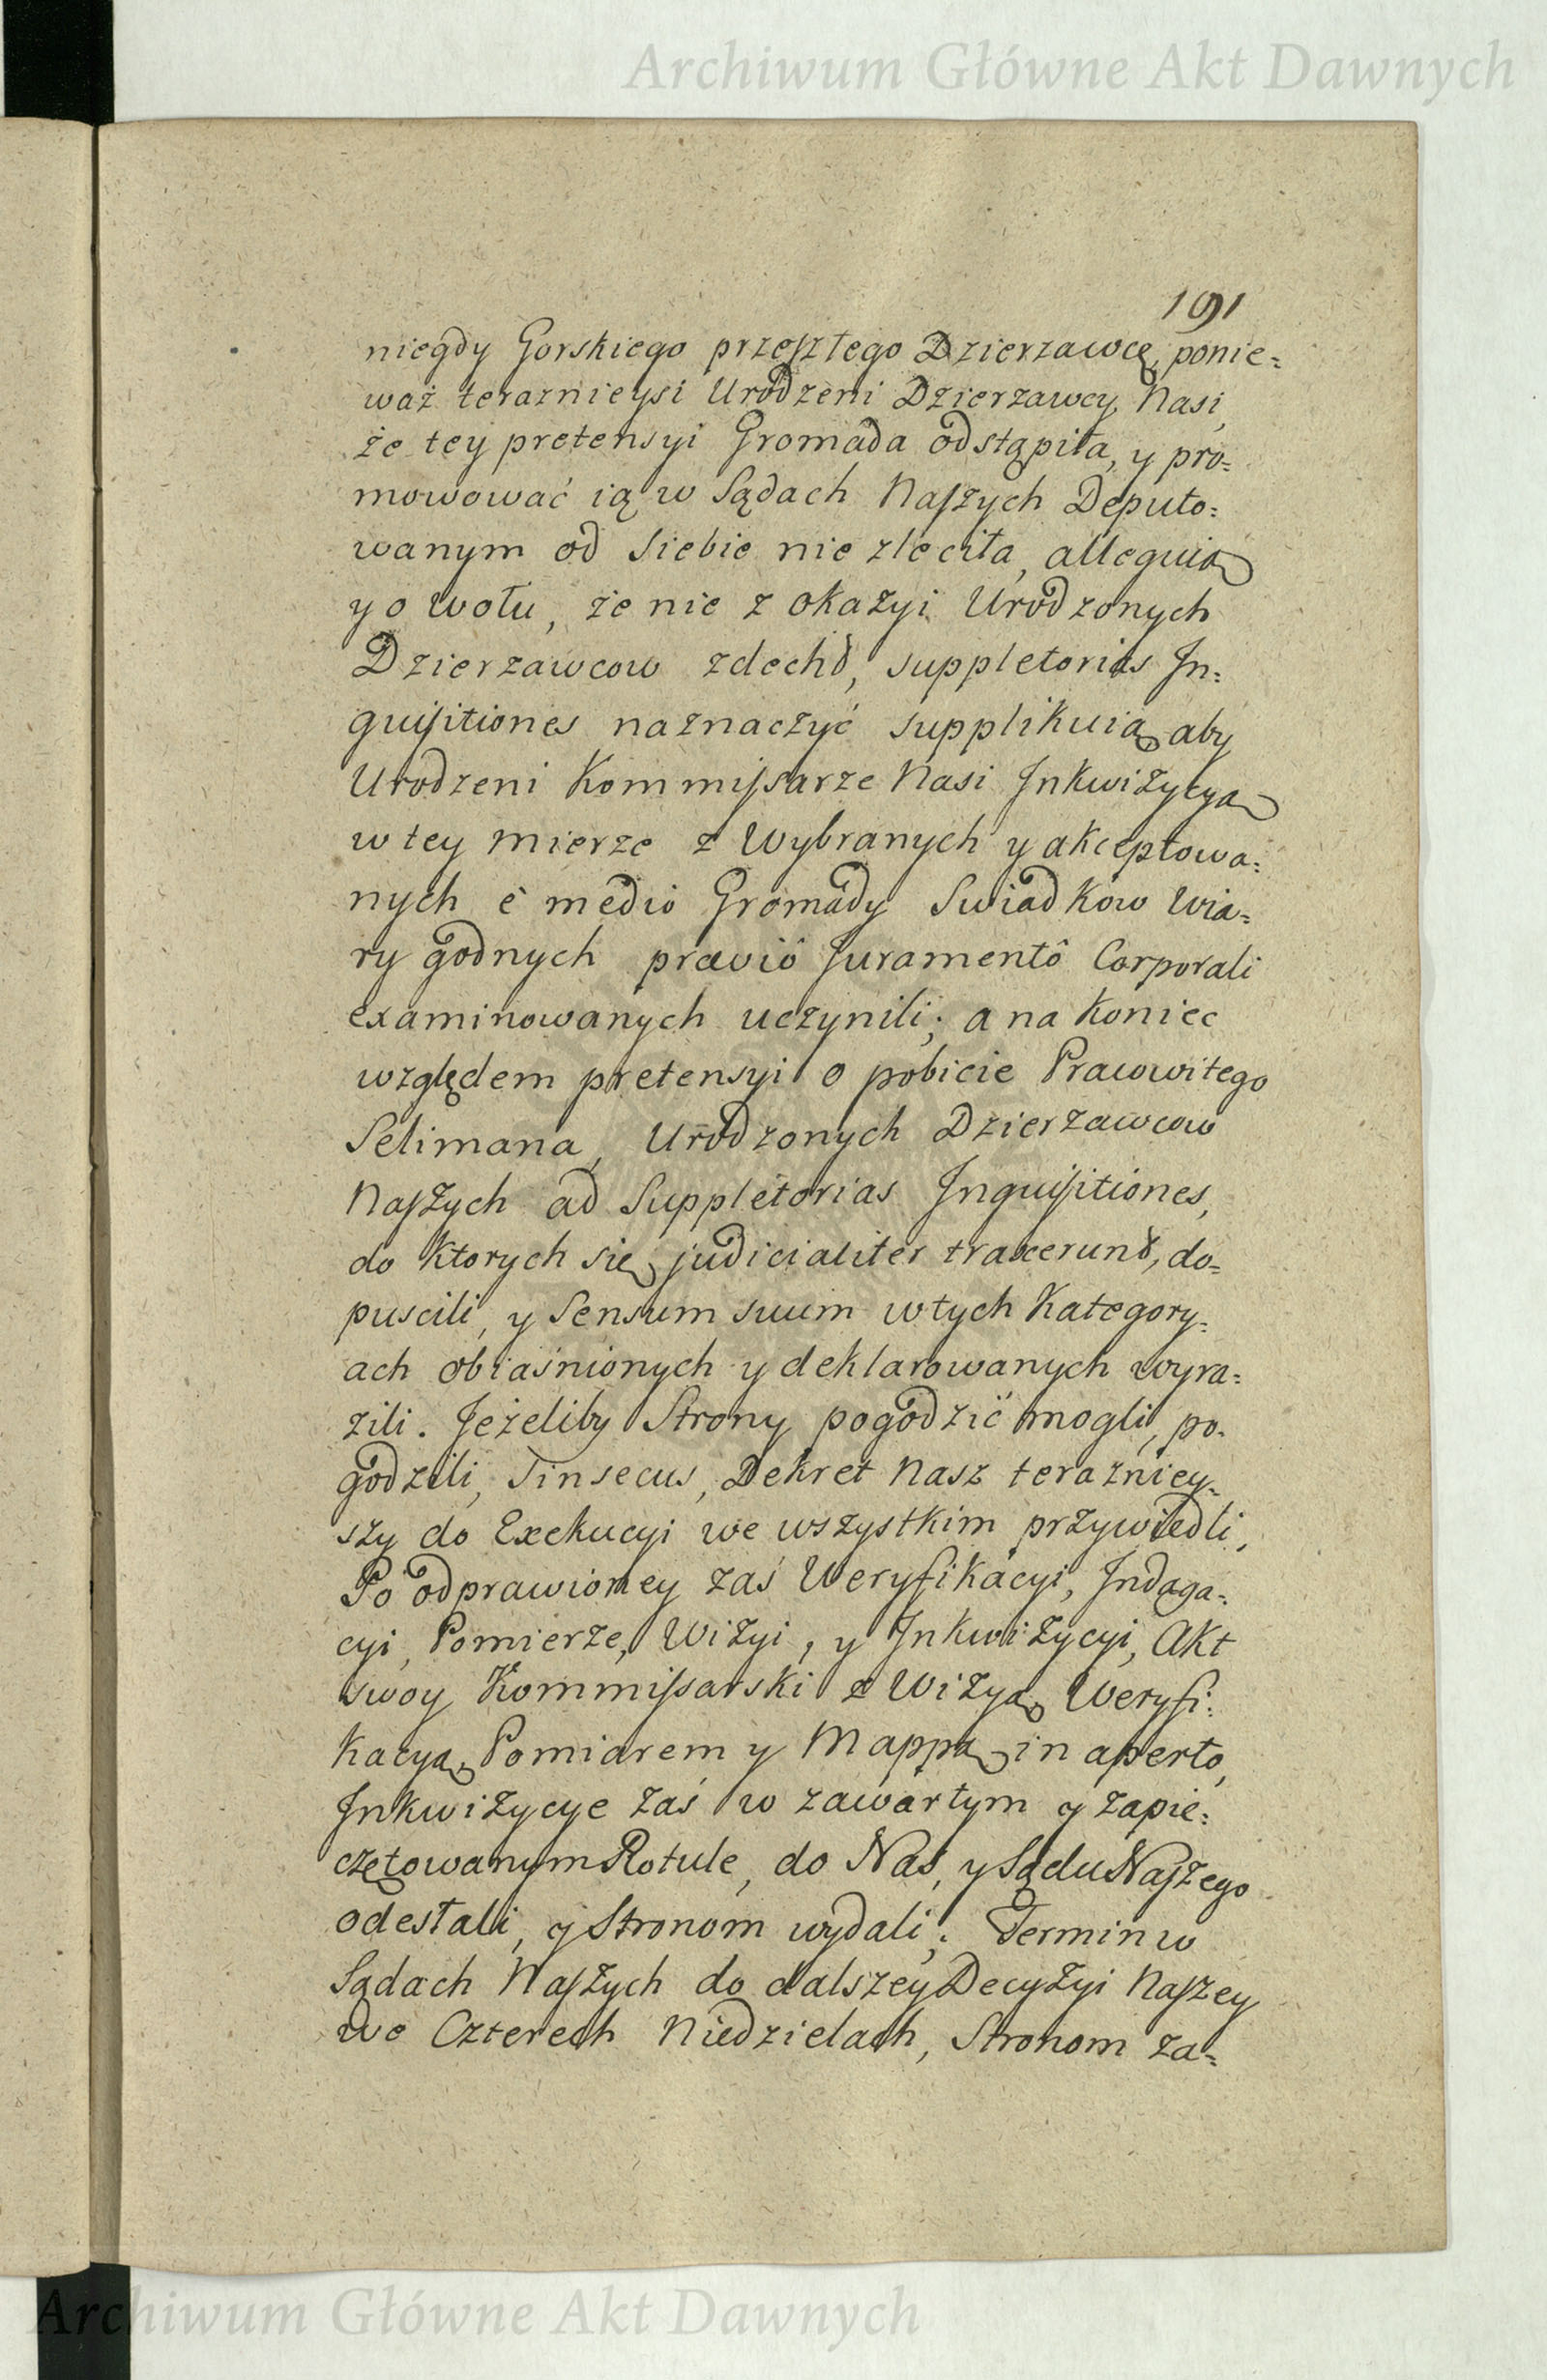 Archiwum Główne Akt Dawnych
191
niegdy Gorskiego przeszłego Dzierzawcę, ponie=
waż teraznieysi Urodzeni Dzierzawcy Nasi,
że tey pretensyi Gromada odstąpiła, y pro=
mowować ią w Sądach Naszych Deputo=
wanym od siebie nie zleciła, alleguią
y o wołu, że nie z okazyi Urodzonych
Dzierzawcow zdechł, suppletorias In=
quisitiones naznaczyć supplikuią, aby
Urodzeni Kommissarze Nasi Inkwizycyą
w tey mierze z Wybranych y akceptowa=
nych è medio Gromady Swiadkow Wia=
ry godnych præviô Juramentô Corporali
examinowanych uczynili; a na koniec
względem pretensyi o pobicie Prawowitego
Selimana, Urodzonych Dzierzawcow
Naszych ad Suppletorias Inquisitiones,
do ktorych się judicialiter traxerunt, do=
puscili, y Sensum suum w tych Kategory=
ach obiaśnionych y deklarowanych wyra=
zili. Jeżeliby Strony pogodzić mogli, po=
godzili, Sinsecus, Dekret Nasz terazniey=
szy do Exekucyi we wszystkim przywiedli,
Po odprawioney zaś Weryfikacyi, Indaga=
cyi, Pomierze, Wizyi, y Inkwizycyi, Akt
swoy Kommissarski z Wizyą, Weryfi=
kacyą, Pomiarem y Mappą in aperto,
Inkwizycye zaś w zawartym y zapie=
czętowanym Rotule, do Nas, y Sądu Naszego
odesłali, y Stronom wydali; Termin w
Sądach Naszych do dalszey Decyzyi Naszey
we Czterech Niedzielach, Stronom za=
Archiwum Główne Akt Dawnych